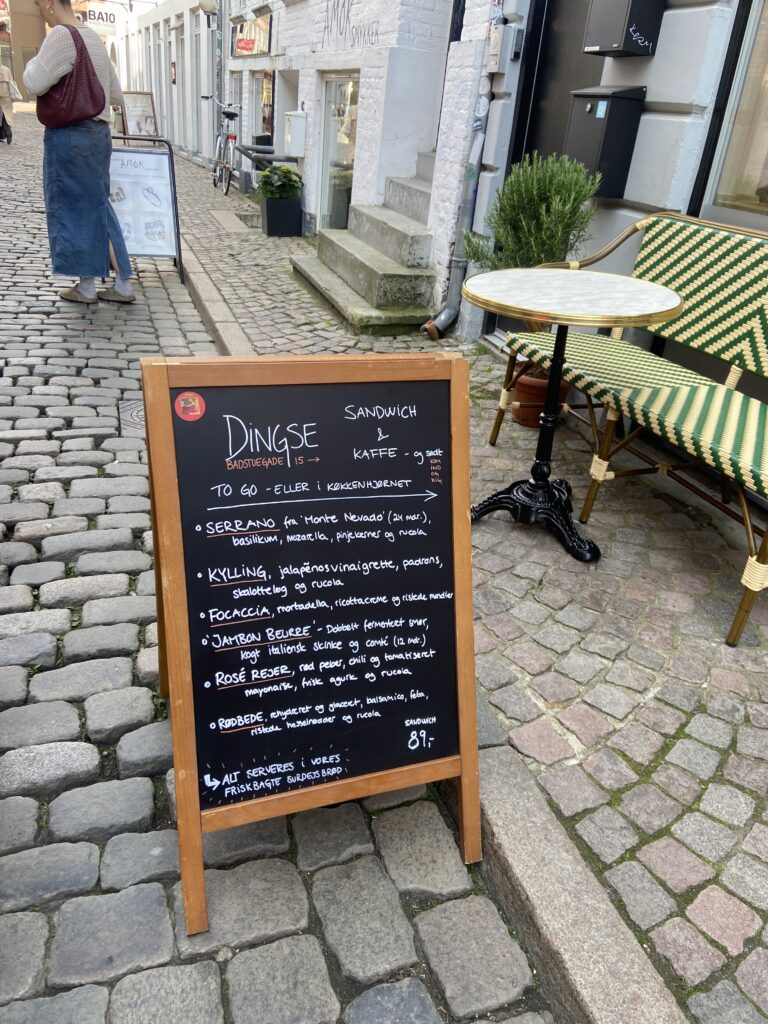 BA10
AMOK
SMYKKER
AMOK
DINGSE
BADSTUEGADE 15 →
SANDWICH
&
KAFFE - og sødt
KOM
IND
OG
KIG
TO GO - ELLER i KØKKENHJØRNET
SERRANO fra 'Monte Nevado' (24 mdr.),
basilikum, mozarella, pinjekerner og rucola
KYLLING, jalapeños vinaigrette, padrons,
skalotteløg og rucola
FOCACCIA, mortadella, ricottacreme og ristede mandler
'JAMBON BEURRE' - Dobbelt fermenteret smør,
kogt italiensk skinke og comté (12 mdr.)
ROSÉ REJER, rød peber, chili og tomatiseret
mayonaise, frisk agurk og rucola
RØDBEDE, rehydreret og glaceret, balsamico, feta,
ristede hasselnødder og rucola
SANDWICH
89,-
ALT SERVERES i VORES
FRISKBAGTE SURDEJSBRØD